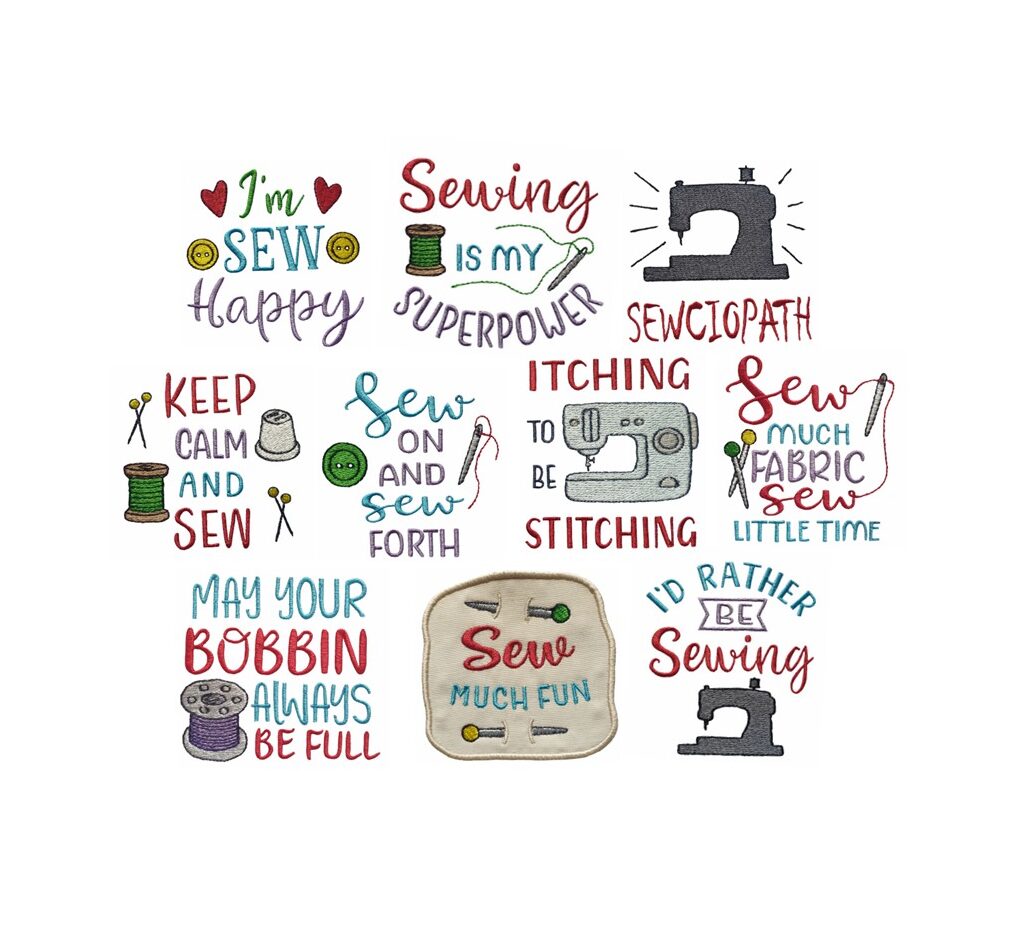 I'm
SEW
Happy
Sewing
IS MY
SUPERPOWER
SEWCIOPATH
KEEP
CALM
AND
SEW
Sew
ON
AND
sew
FORTH
ITCHING
TO
BE
STITCHING
Sew
MUCH
FABRIC
sew
LITTLE TIME
MAY YOUR
BOBBIN
ALWAYS
BE FULL
Sew
MUCH FUN
I'D RATHER
BE
Sewing